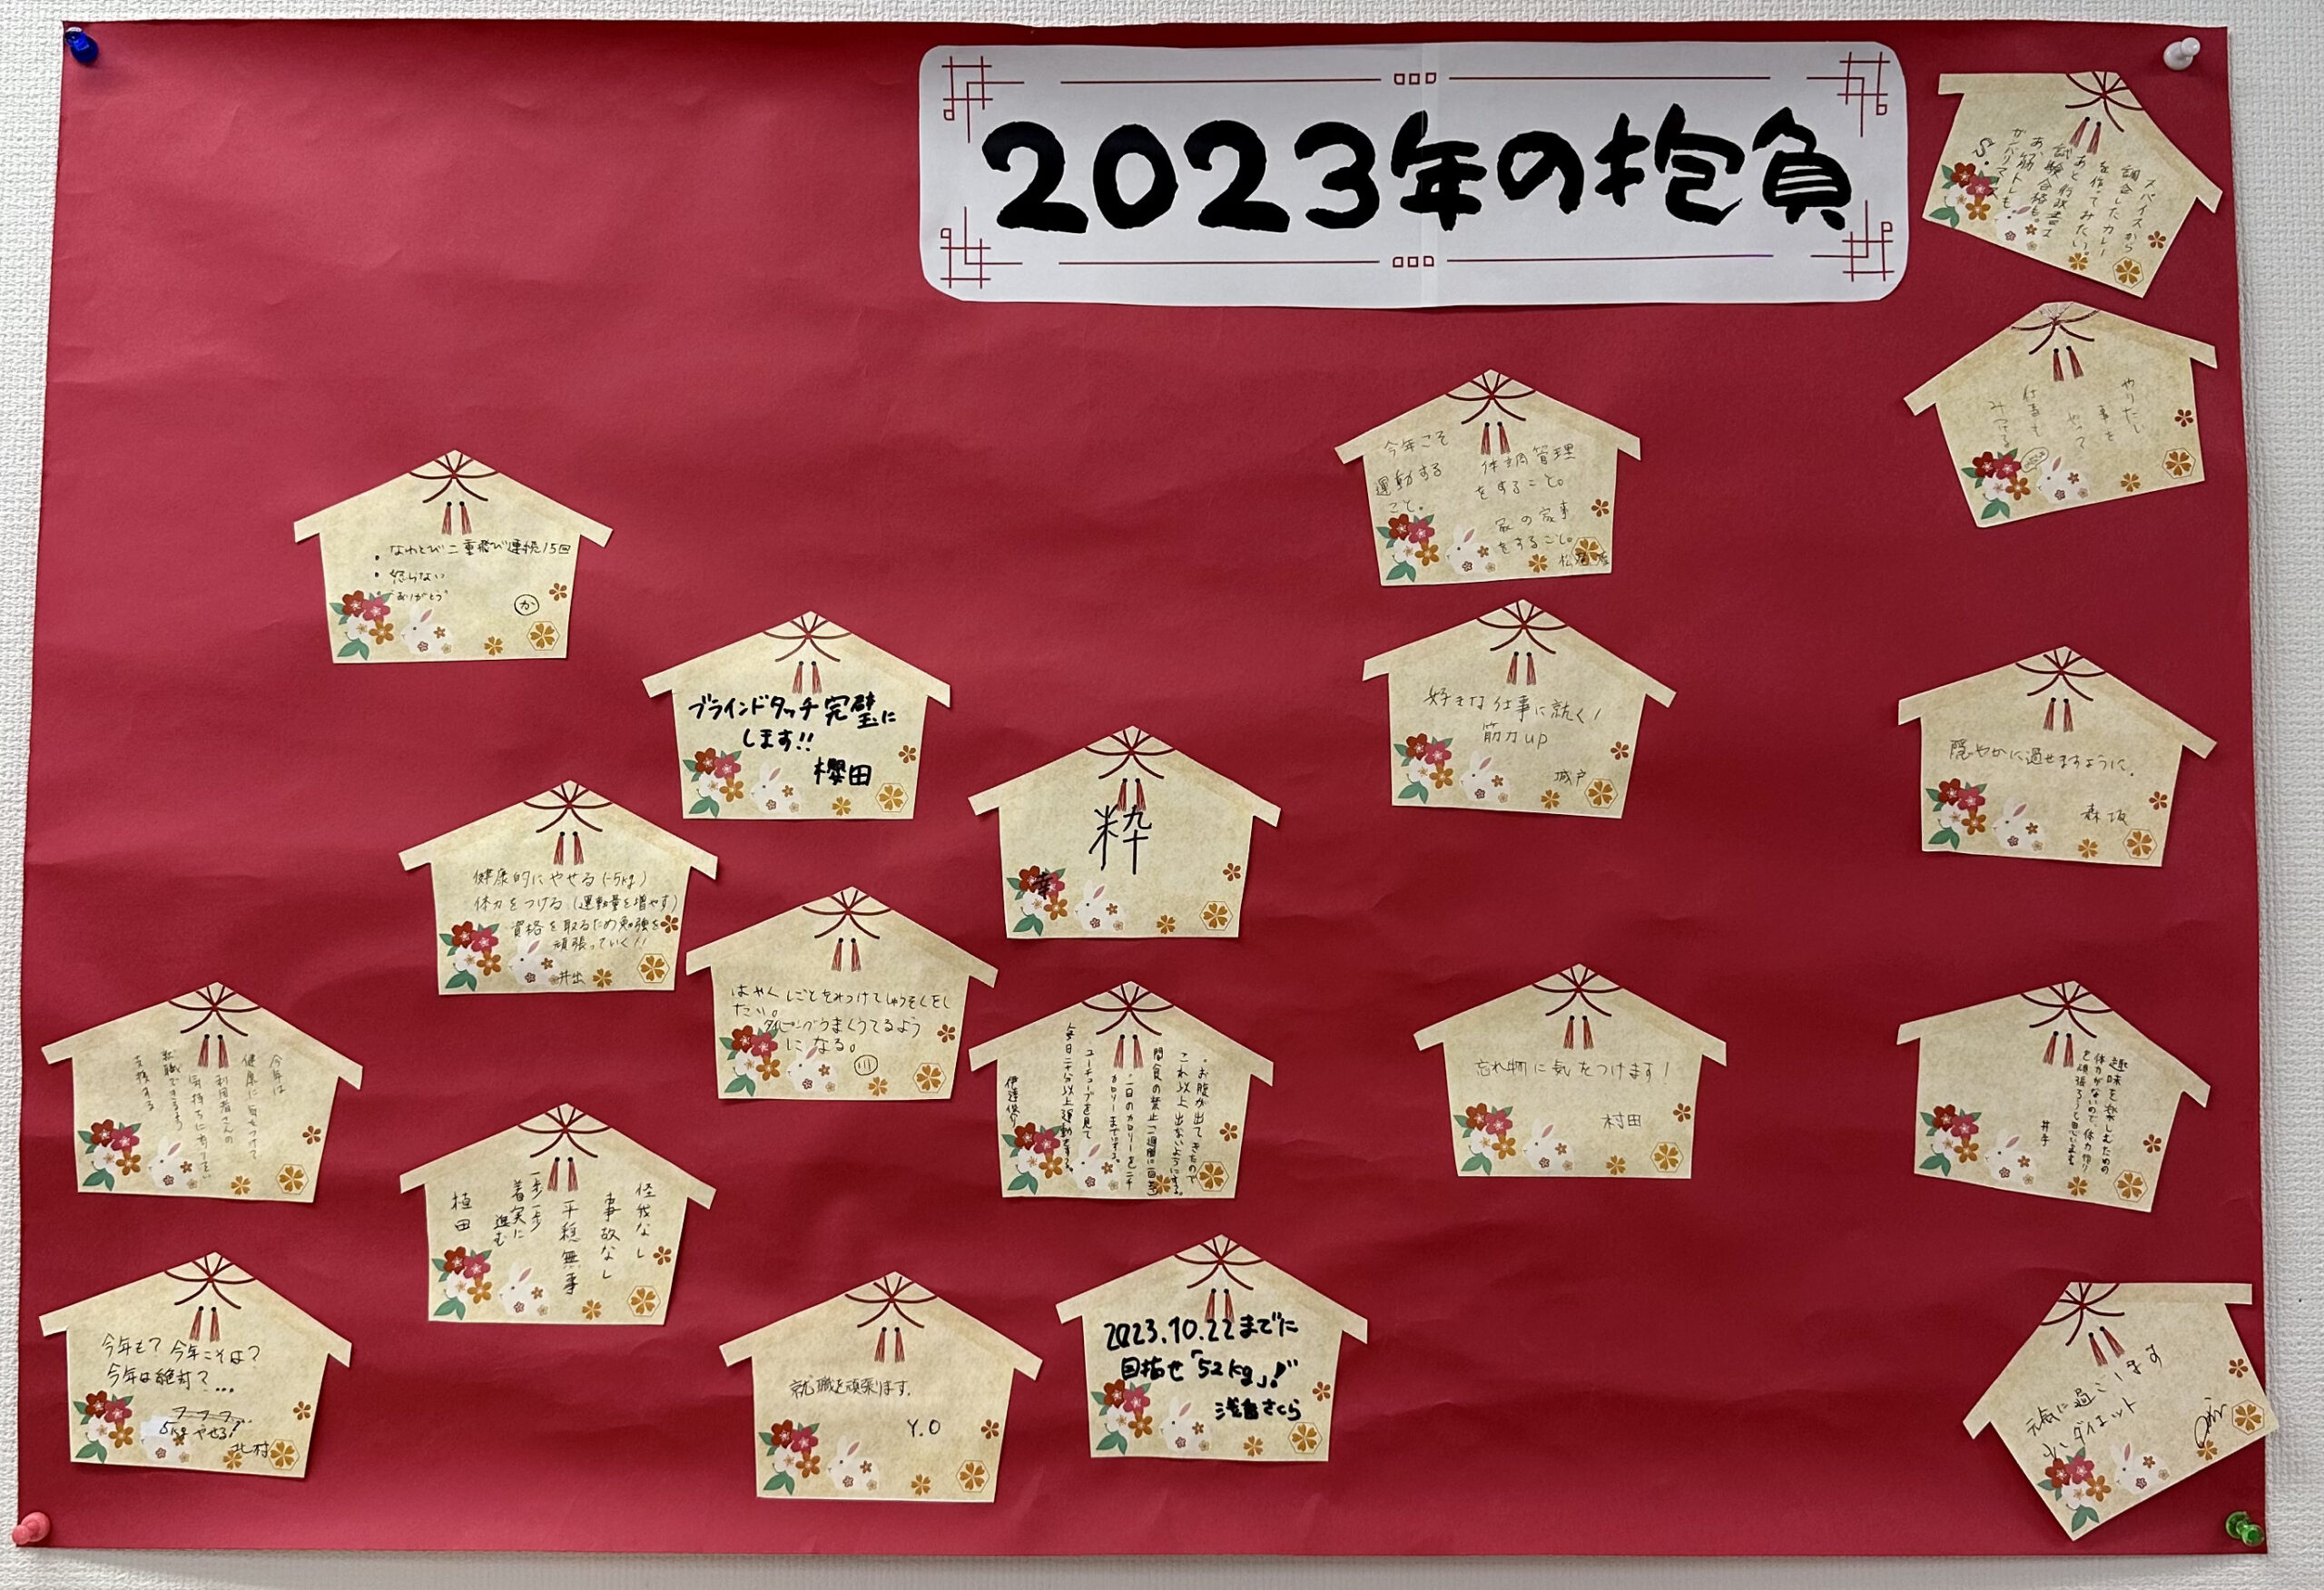 2023年の抱負
スパイスから
調合したカレー
を作ってみたい
あと行政書士
試験合格も。
あ、筋トレも
ガンバリマース
S.
やりたい
事を
やって
仕事も
みつける
今年こそ
運動する
こと。
体調管理
をすること。
家の家事
をすること。
・なわとび二重飛び連続15回
・怒らない
・"ありがとう"
か
ブラインドタッチ完璧に
します!!
櫻田
好きな仕事に就く!
筋力up
城戸
穏やかに過せますように。
森坂
粋
幸
健康的にやせる(-5kg)
体力をつける(運動量を増やす)
資格を取るため勉強を
頑張っていく!!
井出
はやくしごとをみつけてしゅうそくをし
たい。
タイピングうまくうてるよう
になる。
川
・お腹が出てきたので
これ以上出ないようにする。
間食の禁止
・一日のカロリーを二千
カロリーまでにする。
ユーチューブを見て
毎日二十分以上運動する。
忘れ物に気をつけます!
村田
趣味を楽しむための
体力がないので、体力作り
を頑張ろうと思います。
井手
今年は
健康に気をつけて
利用者さんの
気持ちに寄りそい
就職できるよう
支援する
怪我なし
事故なし
平穏無事
一歩一歩
着実に
進む
植田
今年も? 今年こそは?
今年は絶対?...
フフフ...
5kgやせる!
北村
就職を頑張ります。
Y.O
2023.10.22までに
目指せ「52kg」!
さくら
元気に過ごします
ダイエット